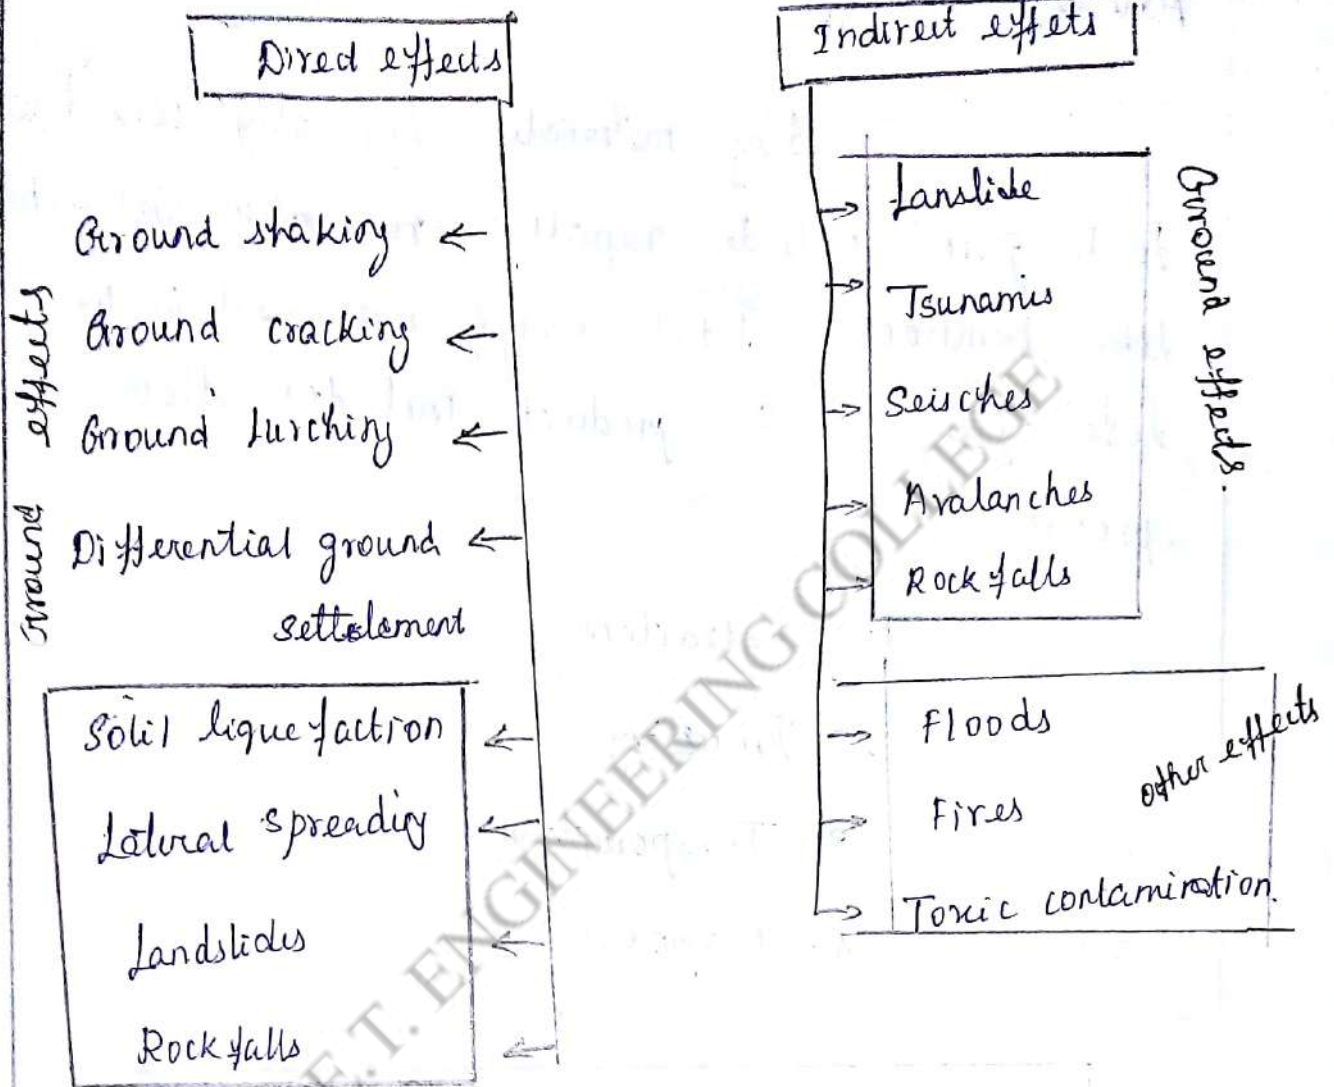 Dired effects
Ground shaking
Ground cracking
Ground lurching
Differential ground
settelement
Ground effects
Solil liquefaction
Lateral spreading
Landslides
Rock falls
Indirect effets
Lanslide
Tsunamis
Seisches
Avalanches
Rock falls
Ground effects.
Floods
Fires
Toxic contamination.
other effects
E.T. ENGINEERING COLLEGE